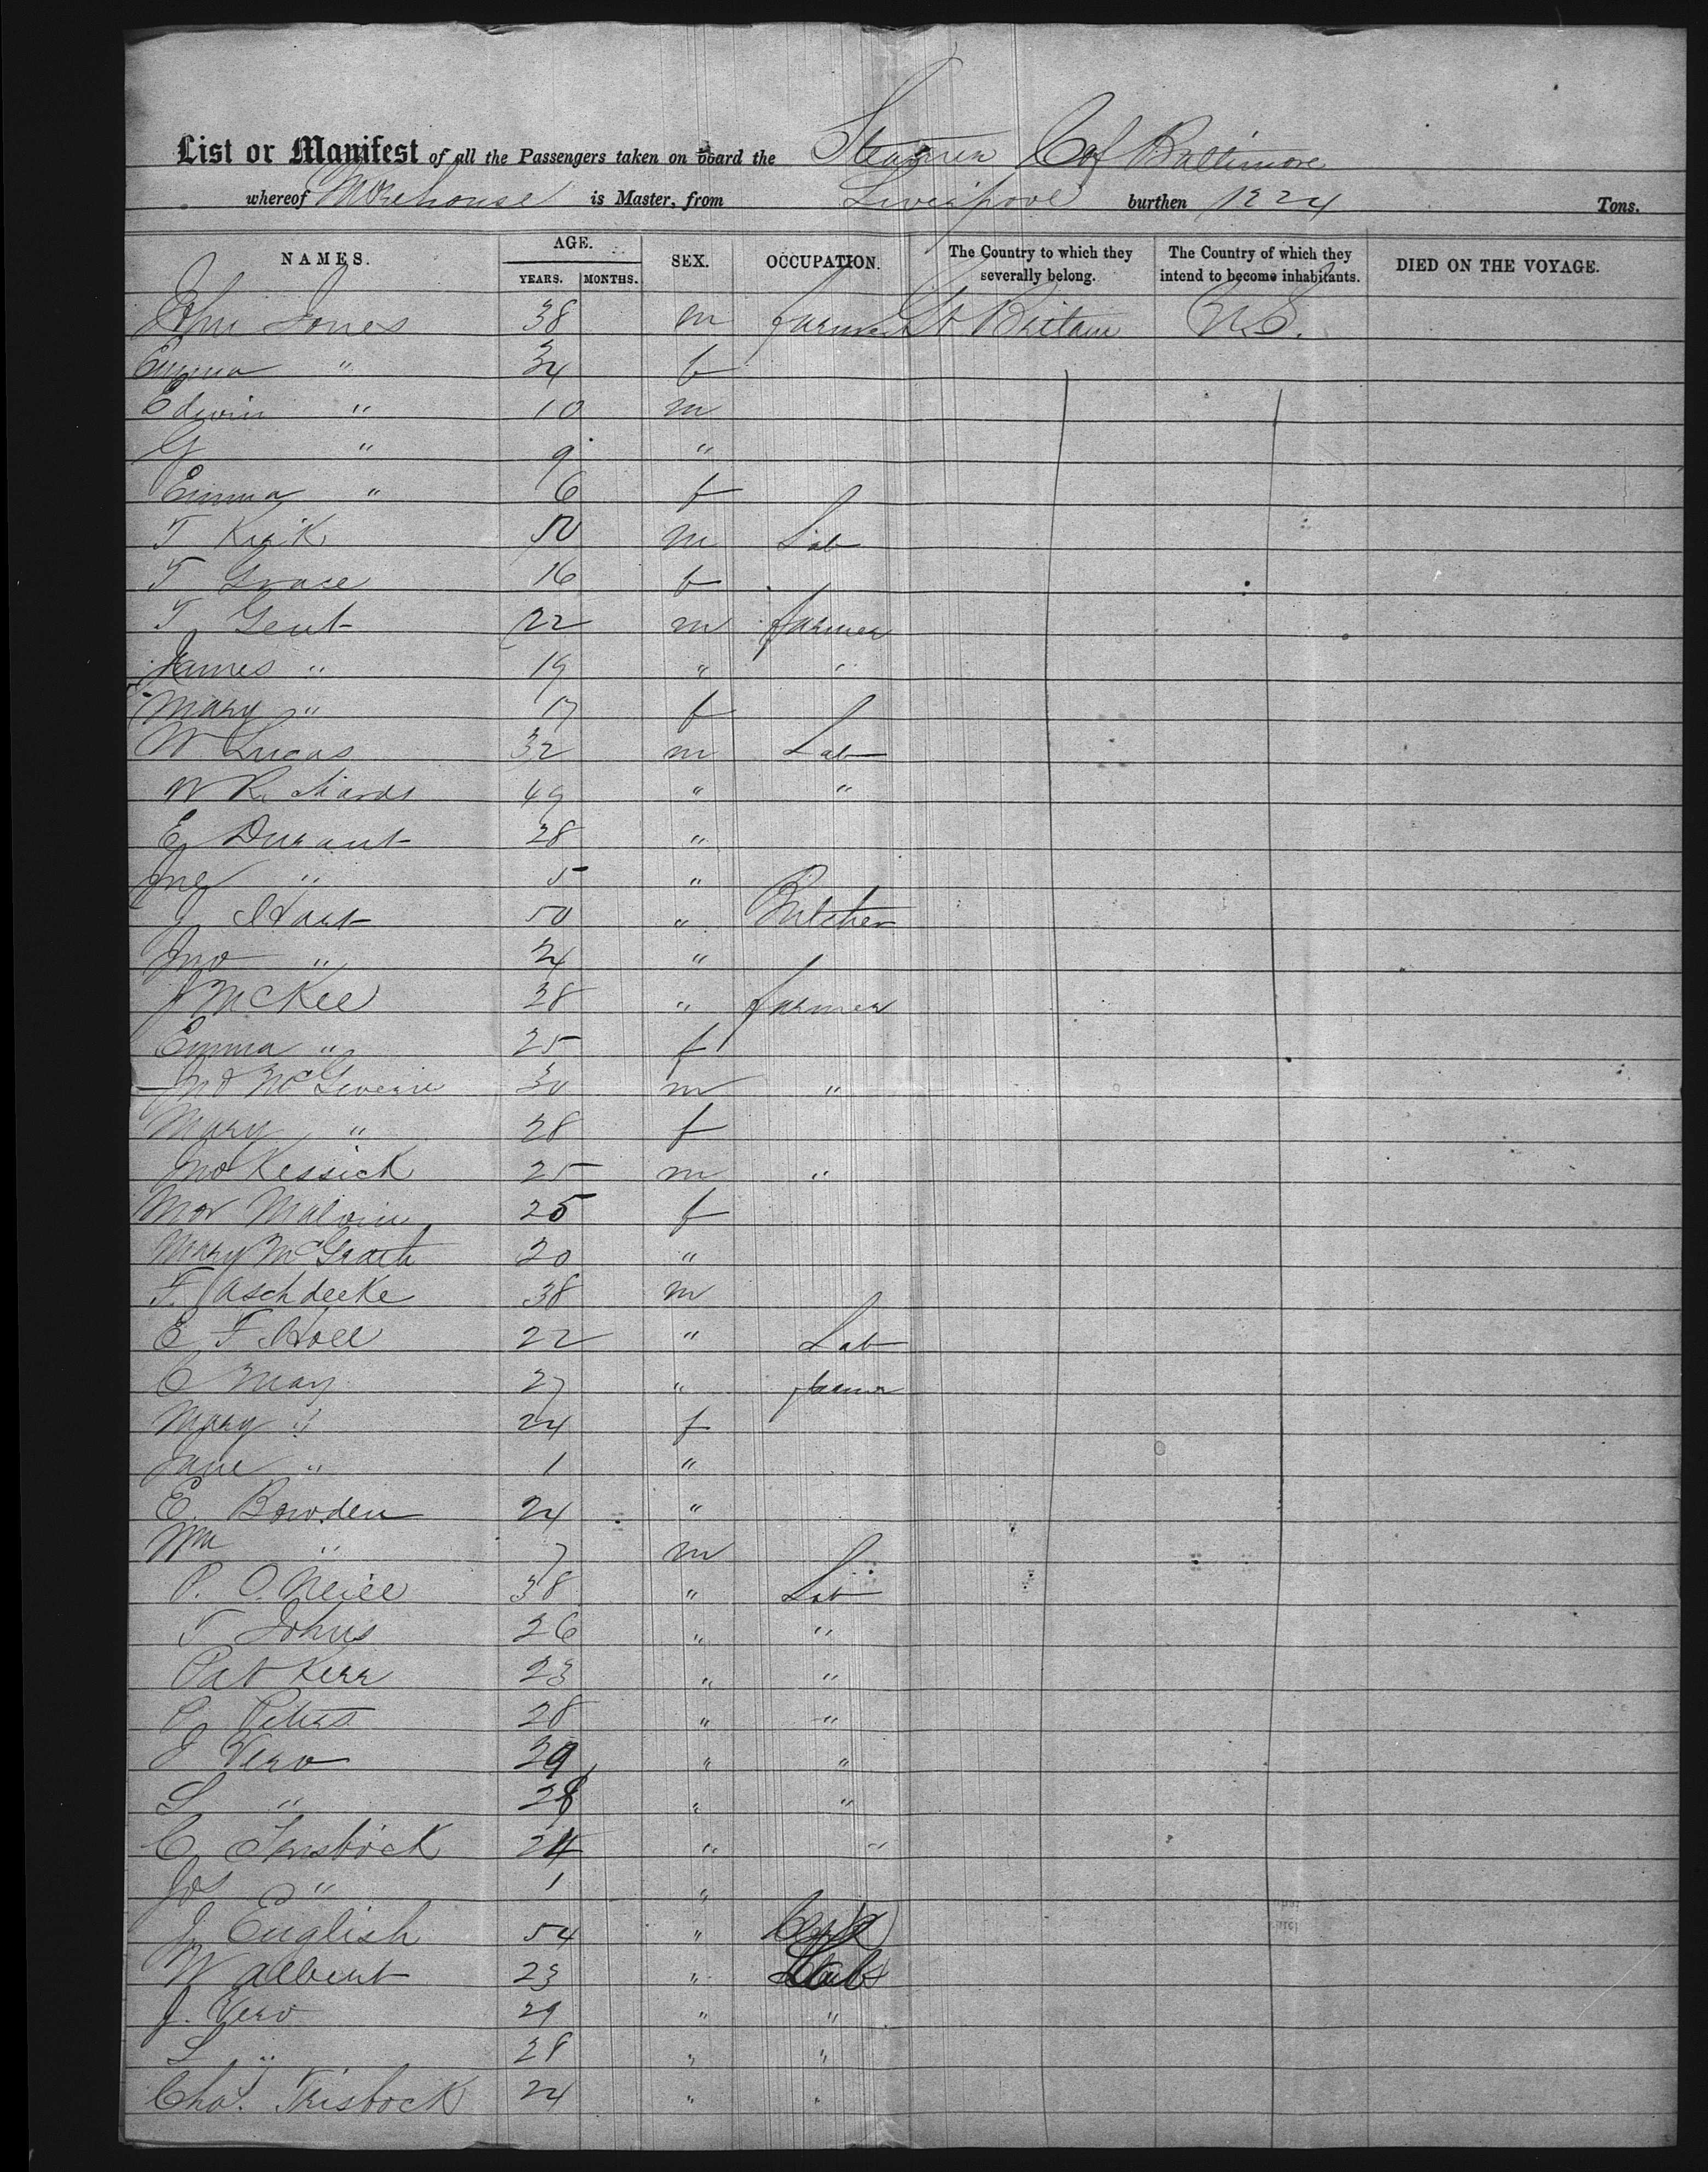 List or Manifest of all the Passengers taken on board the Steamer C of Baltimore
whereof Morehouse is Master, from Liverpool burthen 1224 Tons.
NAMES. AGE. SEX. OCCUPATION. The Country to which they severally belong. The Country of which they intend to become inhabitants. DIED ON THE VOYAGE.
YEARS. MONTHS.
John Jones 38 m farmer Gt Britain U.S.
Emma " 34 f
Edwin " 10 m
G " 9 "
Emma " 6 f
T Kirk 50 m Lab
T Grace 16 f
T Gent 22 m farmer
James " 19 " "
Mary " 17 f
W Lucas 32 m Lab
W Richards 49 " "
E Durant 28 "
" 5 "
J Hart 50 " Butcher
Jno " 24 "
J McKee 28 " farmer
Emma " 25 f
Jno 30 m "
Mary " 28 f
Jno Kessick 25 m "
Mar Malvin 25 f
Mary McGrath 20 "
F. Jaschdecke 38 m
E F Holl 22 " Lab
C May 27 " farmer
Mary " 24 f
Jane " 1 "
E. Bowden 24 "
Wm " 7 m
P. O.Neill 38 " Lab
T Johns 26 " "
Pat Kerr 23 " "
G Peters 28 " "
J Vero 29 " "
L " 28 " "
C 24 " "
Jos " 1 "
J English 54 "
W Albert 23 " Lab
J. Vero 29 " "
L " 28 " "
Chas. Trisbock 24 " "